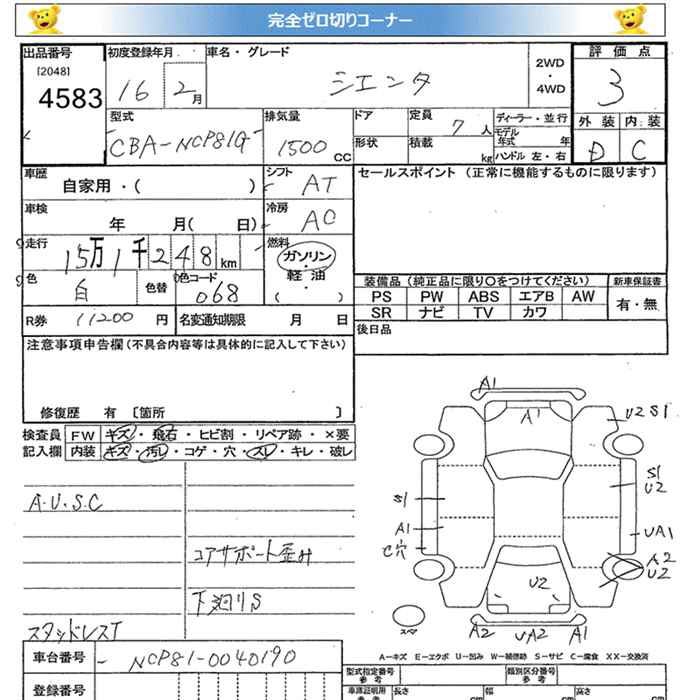 完全ゼロ切りコーナー
出品番号 初度登録年月 車名・グレード 2WD・4WD 評価点
[2048]
4583 16 2月 シエンタ 3
型式 排気量 ドア 定員 7人 ディーラー・並行 外装 内装
CBA-NCP81G 1500cc 形状 積載 kg モデル年式 年 ハンドル 左・右 D C
車歴 自家用・( ) シフト AT セールスポイント (正常に機能するものに限ります)
車検 年 月( 日) 冷房 AC
走行 15万1千248km 燃料 ガソリン・軽油・( )
色 白 色替 色コード 068 装備品(純正品に限り○をつけてください) 新車保証書
PS PW ABS エアB AW 有・無
R券 11200円 名変通知期限 月 日 SR ナビ TV カワ
注意事項申告欄(不具合内容等は具体的に記入して下さい) 後日品
修復歴 有 〔箇所 〕
検査員 FW キズ・飛石・ヒビ割・リペア跡・×要
記入欄 内装 キズ・汚レ・コゲ・穴・スレ・キレ・破レ
A1
A1
U2 S1
S1
U2
A.U.S.C S1
A1 UA1
C穴 A2
U2
コアサポート歪み
U2
下廻りS
スペア
スタッドレスT A2 UA2 A1
A-キズ E-エクボ U-凹み W-補修跡 S-サビ C-腐食 XX-交換済
車台番号 NCP81-0040190
型式指定番号 参考 類別区分番号 参考
登録番号 車庫証明用 参考 長さ cm 幅 cm 高さ cm